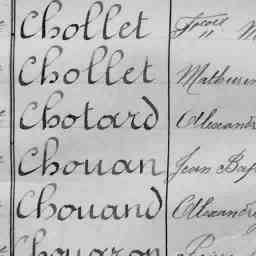 Chollet Fçois
Chollet Mathurin
Chotard Alexandre
Chouan Jean Bap
Chouand Alexandre